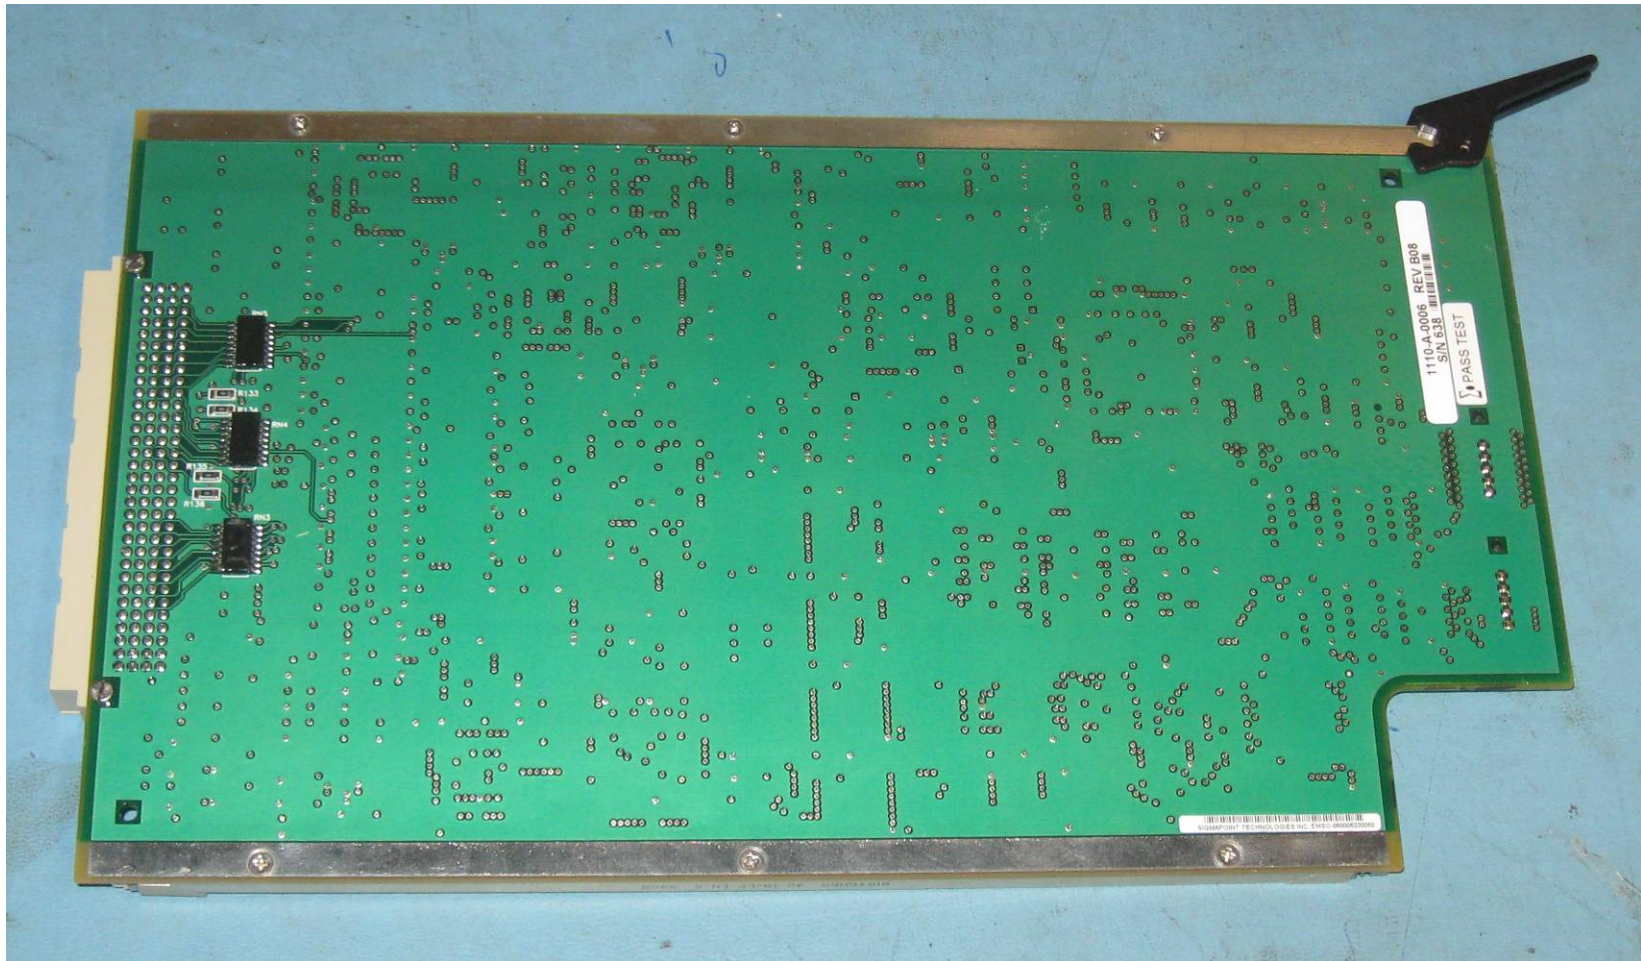 1110-A-0006 REV B08
S/N 638
PASS TEST
R133
R134
RN4
R135
R136
RN3
SIGMAPOINT TECHNOLOGIES INC.